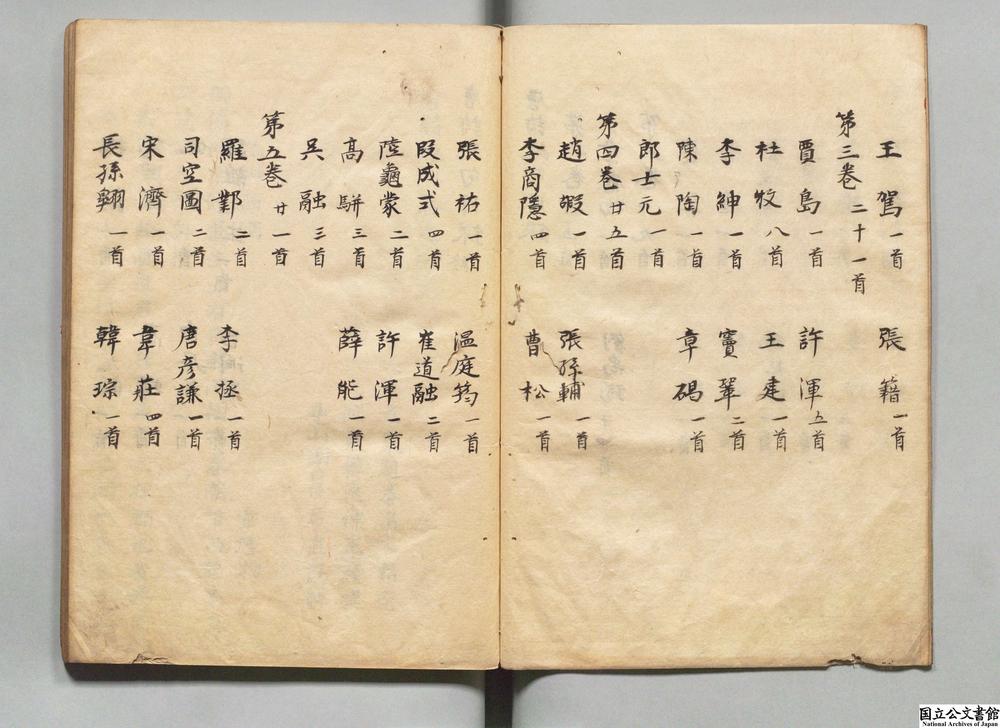 王駕一首 張籍一首
第三卷 二十一首
賈島一首 許渾五首
杜牧八首 王建一首
李紳一首 竇鞏二首
陳陶一首 章碣一首
郎士元一首
第四卷 廿五首
趙嘏一首 張孫輔一首
李商隱四首 曹松一首
張祐一首 温庭筠一首
段成式四首 崔道融二首
陸龜蒙二首 許渾一首
高駢三首 薛能一首
吴融三首
第五卷 廿一首
羅鄴二首 李拯一首
司空圖二首 唐彦謙一首
宋濟一首 韋莊四首
長孫翱一首 韓琮一首
国立公文書館
National Archives of Japan